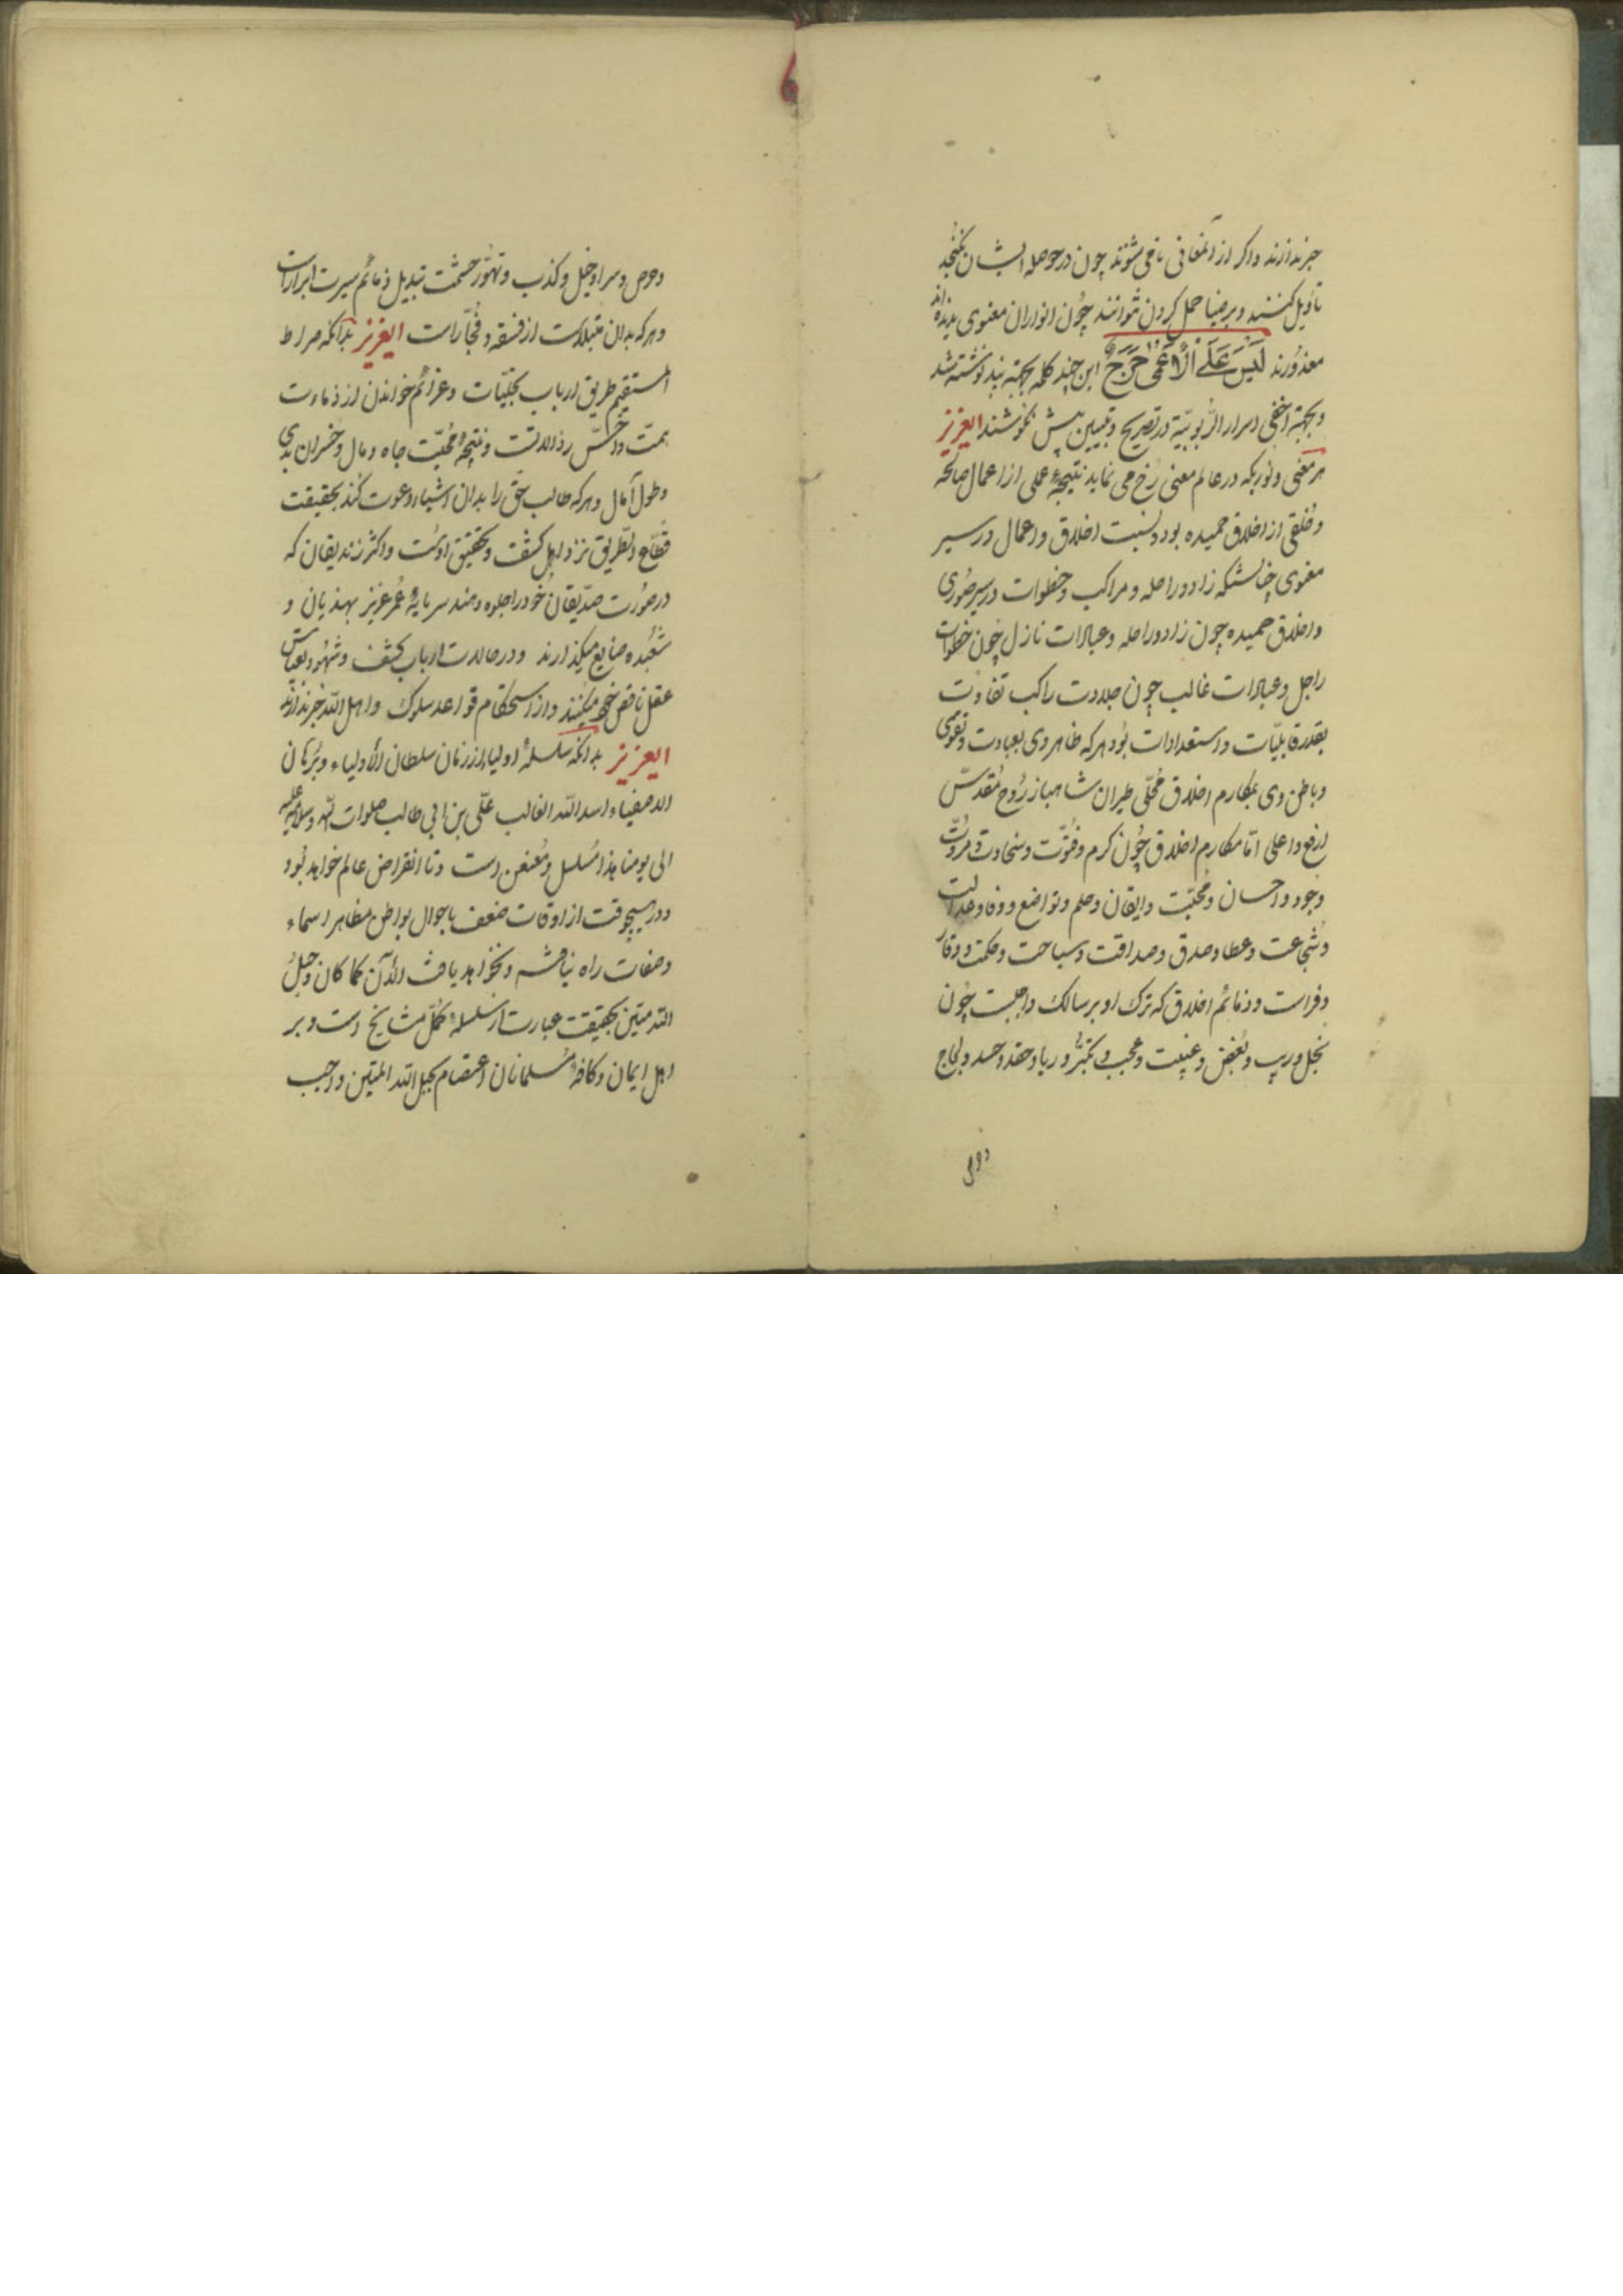 خبر ندارند و اگر از آنمعانی نامی شنوند چون در حوصله ایشان نگنجد
تأویل کنند و بر ضیا حمل کردن نتوانند چُون انوار ان معنوی ندیده‌اند
معذورند لَیْسَ عَلَی الْأَعْمی حَرَجٌ این چند کلمه بجهته نوشته شد
و بجهة اخفی اسرار الرُّبوبیّة در تصریح و تبیین بیش نکوشند ایعزیز
هر معنی و نوریکه در عالم معنی رُخ می نماید نتیجهٔ عملی از اعمال صالحه
و خُلقی از اخلاق حمیده بود و نسبت اخلاق و اعمال در سیر
معنوی چنانستکه زاد و راحله و مراکب و خطوات در سیر صُوری
و اخلاق حمیده چون زاد و راحله و عبادات نازل چُون خطوات
راجل و عبادات غالب چون جلادت راکب تفاوت
بقدر قابلیّات و استعدادات بُود هر که ظاهر وی بعبادت و تقوی
و باطن وی بمکارم اخلاق مُحلّی طیران شاهباز رُوح مُقدسّش
ارفع و اعلی امّا مکارم اخلاق چُون کرم و فتُوّت و سخاوت و مروّت
وجود و احسان و محبّت و ایقان و حلم و تواضع و وفا و عدالت
و شجاعت و عطا و صدق و صداقت و سیاحت و حکمت و وقار
و فراست و ذمائم اخلاق که ترک او بر سالک واجبست چُون
بخل و ریب و بُغض و غیبت و عجب و تکبّر و ریا و حقد و حسد و لجاج
و حرص
و حرص و مرا و حیل و کذب و تهوّر حشمت تبدیل ذمائم سیرت ابرار است
و هر که بدان مبتلاست از فسقه و فُجّار است ایعزیز بدانکه صراط
المستقیم طریق ارباب تجلیّات و عزائم خواندن از دناءت
همّت و خسّ رذالتست و نتیجهٔ محُبّت جاه و مال و خسران بدی
و طول آمال و هر که طالب حق را بدان اشیاء دعوت کند بحقیقت
قطّاع الطریق نزد اهل کشف و تحقیق اوست و اکثر زندیقان که
در صُورت صدّیقان خود را جلوه دهند سرمایهٔ عُمر عزیز بهذیان و
شعبُده ضایع میگذارند و در حالات ارباب کشف و شهُود بقیاس
عقل ناقص خود میکنند و از استحکام قواعد سلوک و اهل الله خبر ندارند
ایعزیز بدانکه سلسلهٔ اولیاء از زمان سلطان الأولیاء و بُرهان
الاصفیاء اسد الله الغالب علی بن ابی طالب صلوات الله و سلامه علیه
الی یومنا هذا مُسلسل و مُعنعن است و تا انقراض عالم خواهد بُود
و در هیچوقت از اوقات ضعف باحوال بواطن مظاهر اسماء
و صفات راه نیافته و نخواهد یافت الأن کما کان و حبلُ
الله متین بحقیقت عبارت از سلسلهٔ کُمّل مشایخ است و بر
اهل ایمان و کافهٔ مُسلمانان اعتصام بحبل الله المتین واجب